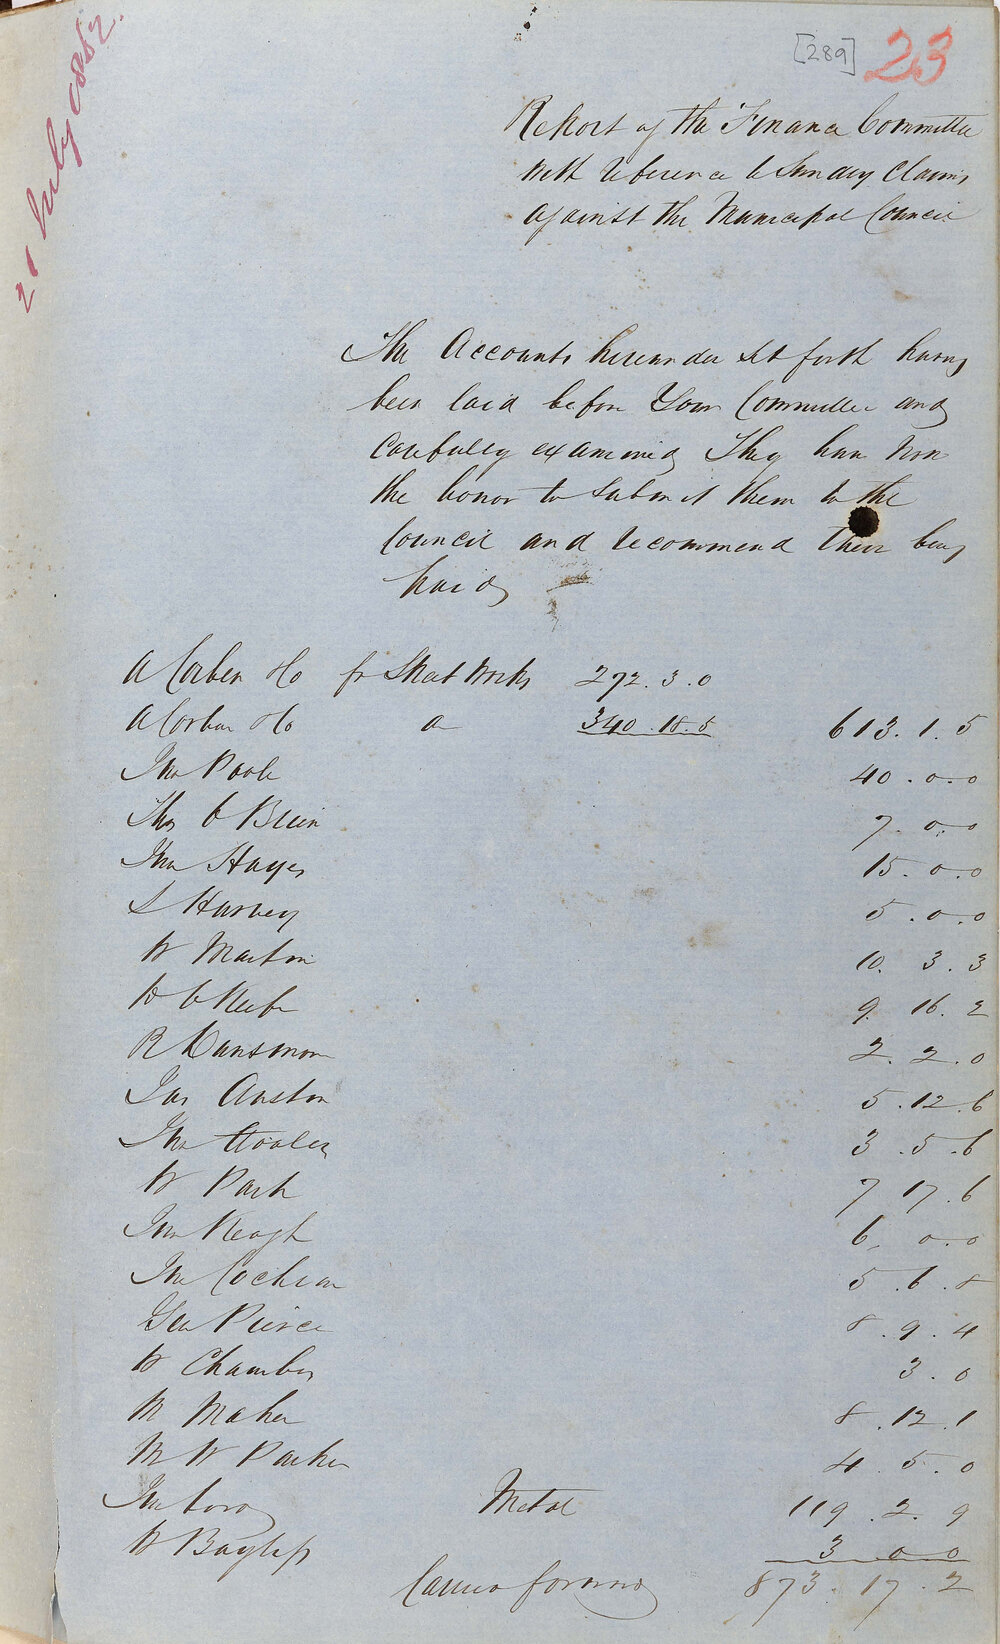 21 July 1862.
[289] 23
Report of the Finance Committee
with reference to Sundry Claims
against the Municipal Council
The Accounts hereunder set forth having
been laid before Your Committee and
Carefully examined They have now
the honor to submit them to the
Council and recommend their being
paid
A Corben & Co for Street Works 272.3.0
A Corben & Co Do 340.18.5 613.1.5
Jno Poole 40.0.0
Thos O Brien 7.0.0
Jno Hayes 15.0.0
S Harvey 5.0.0
W Martin 10.3.3
D O Keefe 9.16.2
R 2.2.0
Jas Auston 5.12.6
Jno Hooley 3.5.6
W Park 7 17.6
Jno Keogh 6.0.0
Jno Cochran 5.6.8
Geo Pierce 8.9.4
W Chambers 3.0
M Maher 8.12.1
M W Parker 4.5.0
Jno Metal 119.2.9
W 3 0 0
Carried forward 873.17.2